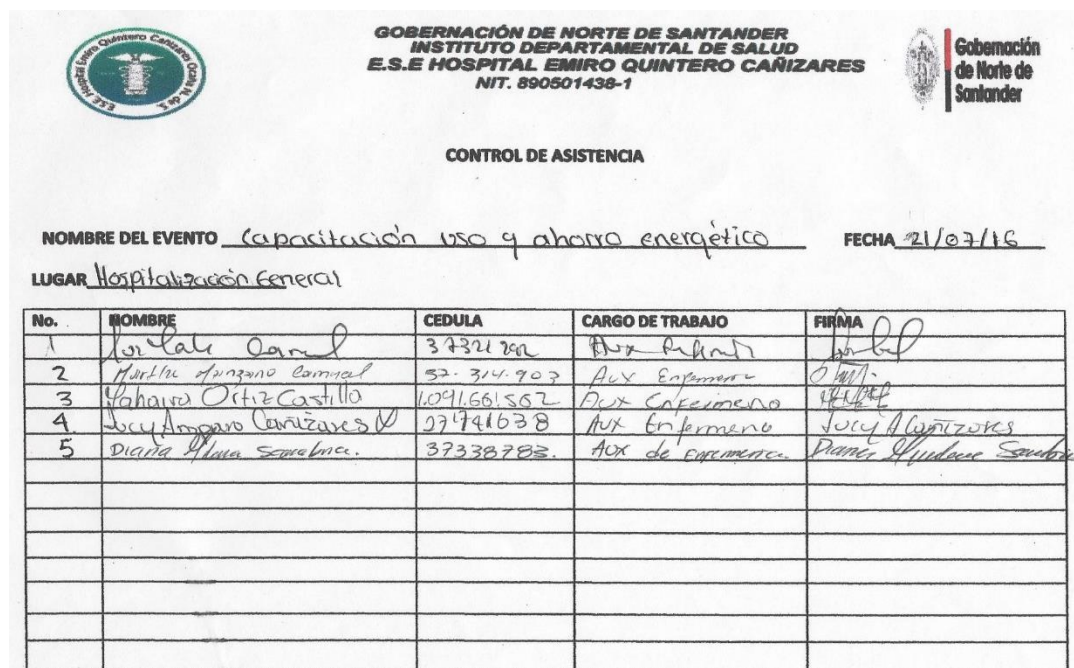 E.S.E Hospital Emiro Quintero Cañizares
GOBERNACIÓN DE NORTE DE SANTANDER
INSTITUTO DEPARTAMENTAL DE SALUD
E.S.E HOSPITAL EMIRO QUINTERO CAÑIZARES
NIT. 890501438-1
Gobernación
de Norte de
Santander
CONTROL DE ASISTENCIA
NOMBRE DEL EVENTO Capacitación uso y ahorro energético FECHA 21/07/16
LUGAR Hospitalización General
No. NOMBRE CEDULA CARGO DE TRABAJO FIRMA
1 Aux
2 Manzano 37.314.903 Aux Enfermera
3 Yahaira Ortiz Castilla 1.091.661.562 Aux Enfermeno
4 Lucy Amparo Cañizares 27741638 Aux Enfermeno Lucy A Cañizares
5 Diana 37338783. Aux de Enfermeria. Diana